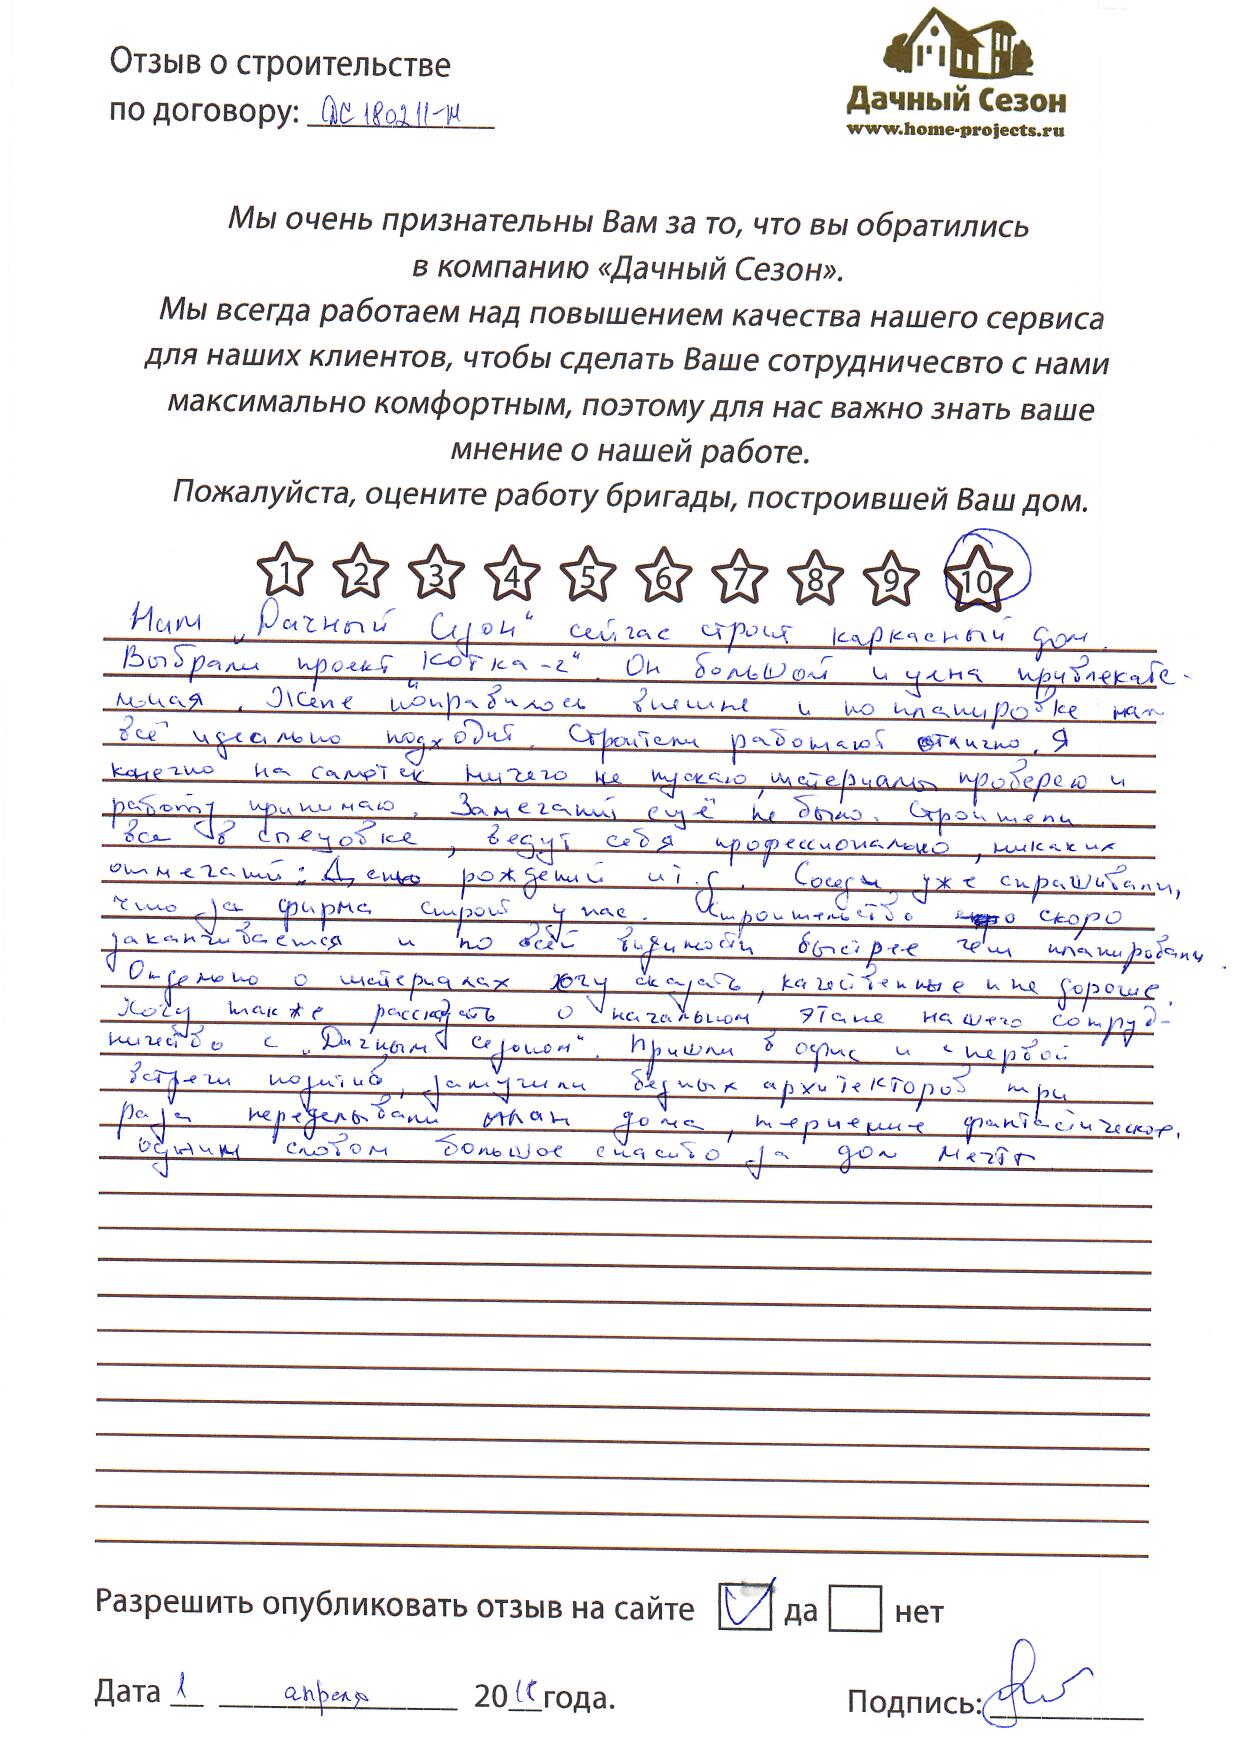 Отзыв о строительстве
по договору: ДС 180211-М
Дачный Сезон
www.home-projects.ru
Мы очень признательны Вам за то, что вы обратились
в компанию «Дачный Сезон».
Мы всегда работаем над повышением качества нашего сервиса
для наших клиентов, чтобы сделать Ваше сотрудничесвто с нами
максимально комфортным, поэтому для нас важно знать ваше
мнение о нашей работе.
Пожалуйста, оцените работу бригады, построившей Ваш дом.
1 2 3 4 5 6 7 8 9 10
Нам „Дачный Сезон“ сейчас строит каркасный дом.
Выбрали проект „Котка-2“. Он большой и цена привлекате-
льная. Жене понравилось внешне и по планировке нам
всё идеально подходит. Строители работают отлично. Я
конечно на самотек ничего не пускаю, материалы проверяю и
работу принимаю. Замечаний ещё не было. Строители
все в спецовке, ведут себя профессионально, никаких
отмечаний: День рождений и т.д. Соседи уже спрашивали,
что за фирма строит у нас. Строительство скоро
заканчивается и по всей видимости быстрее чем планировали.
Отдельно о материалах хочу сказать, качественные и не дорогие.
Хочу также рассказать о начальном этапе нашего сотруд-
ничество с „Дачным сезоном“. Пришли в офис и с первой
встречи позитив, замучили бедных архитекторов три
раза переделывали план дома, терпение фантастическое.
одним словом большое спасибо за дом мечты
Разрешить опубликовать отзыв на сайте да нет
Дата 1 апреля 2018 года. Подпись: